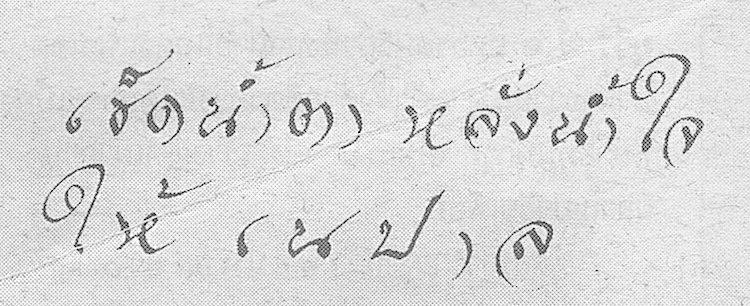 เช็ดน้ำตา หลั่งน้ำใจ
ให้ เนปาล